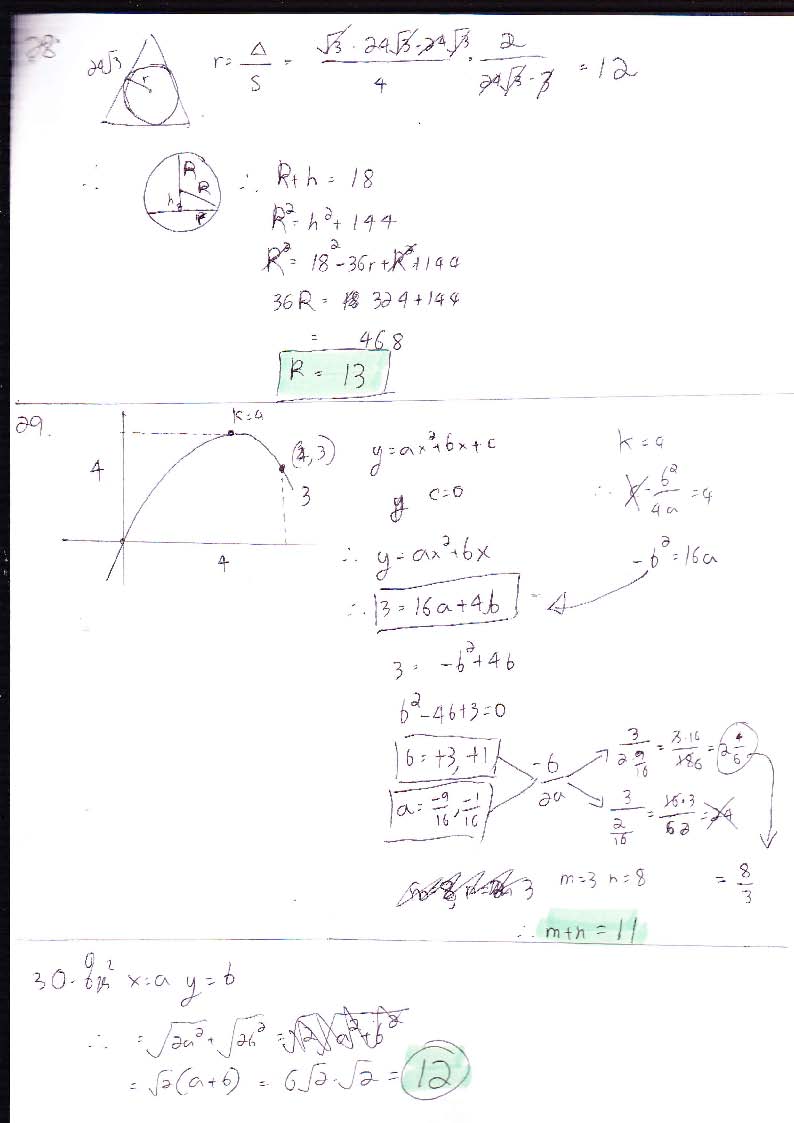 28
24√3 r r = Δ/S = √3 · 24√3 · 24√3 / 4 · 2 / 24√3 · 3 = 12
∴ R R h r ∴ R + h = 18
R² = h² + 144
R² = 18² - 36r + R² + 144
36R = 324 + 144
= 468
R = 13
29.
k = 4
4 (4, 3)
3
4
y = ax² + bx + c
y c = 0
∴ y = ax² + bx
∴ 3 = 16a + 4b
k = 4
∴ - b²/4a = 4
-b² = 16a
3 = -b² + 4b
b² - 4b + 3 = 0
b = +3, +1
a = -9/16, -1/16
-b/2a
3 / 2 9/16 = 3·16/186 = 2 4/6
3 / 2/16 = 16·3/2 = 24
= 8/3
m = 3 n = 8
∴ m + n = 11
30. x = a y = b
∴ = √2a² + √2b² = √2 √a² + b²
= √2 (a + b) = 6√2 · √2 = 12